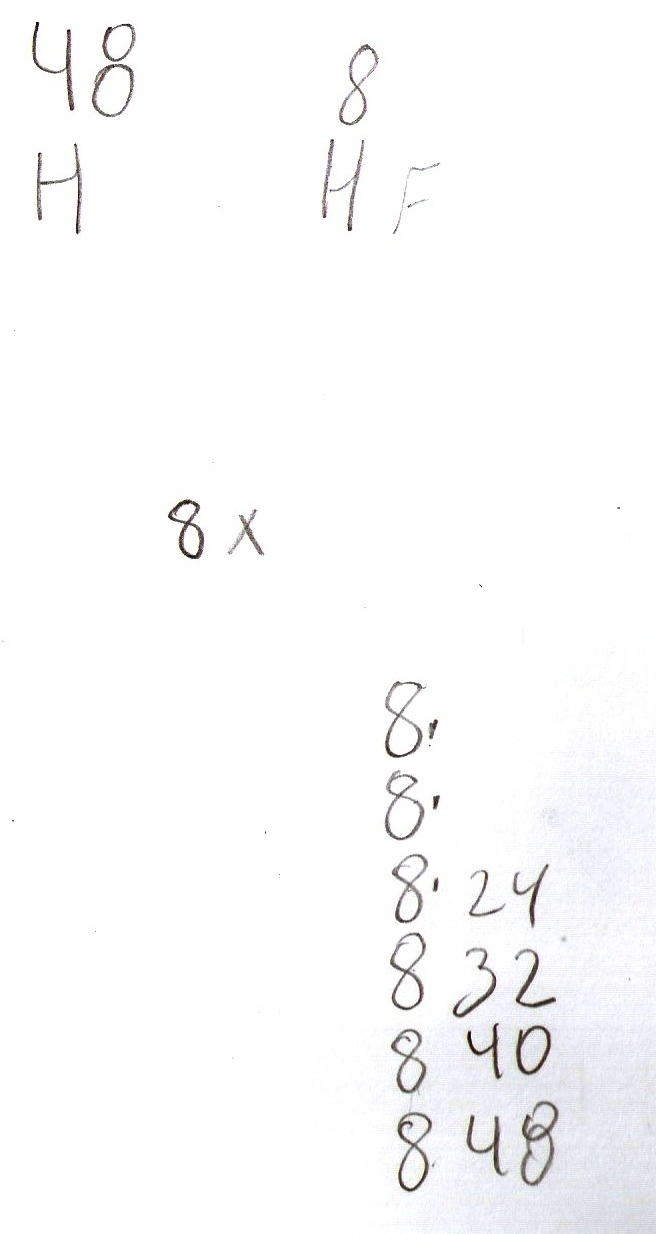 48 8
H H F
8 x
8.
8.
8. 24
8 32
8 40
8 48